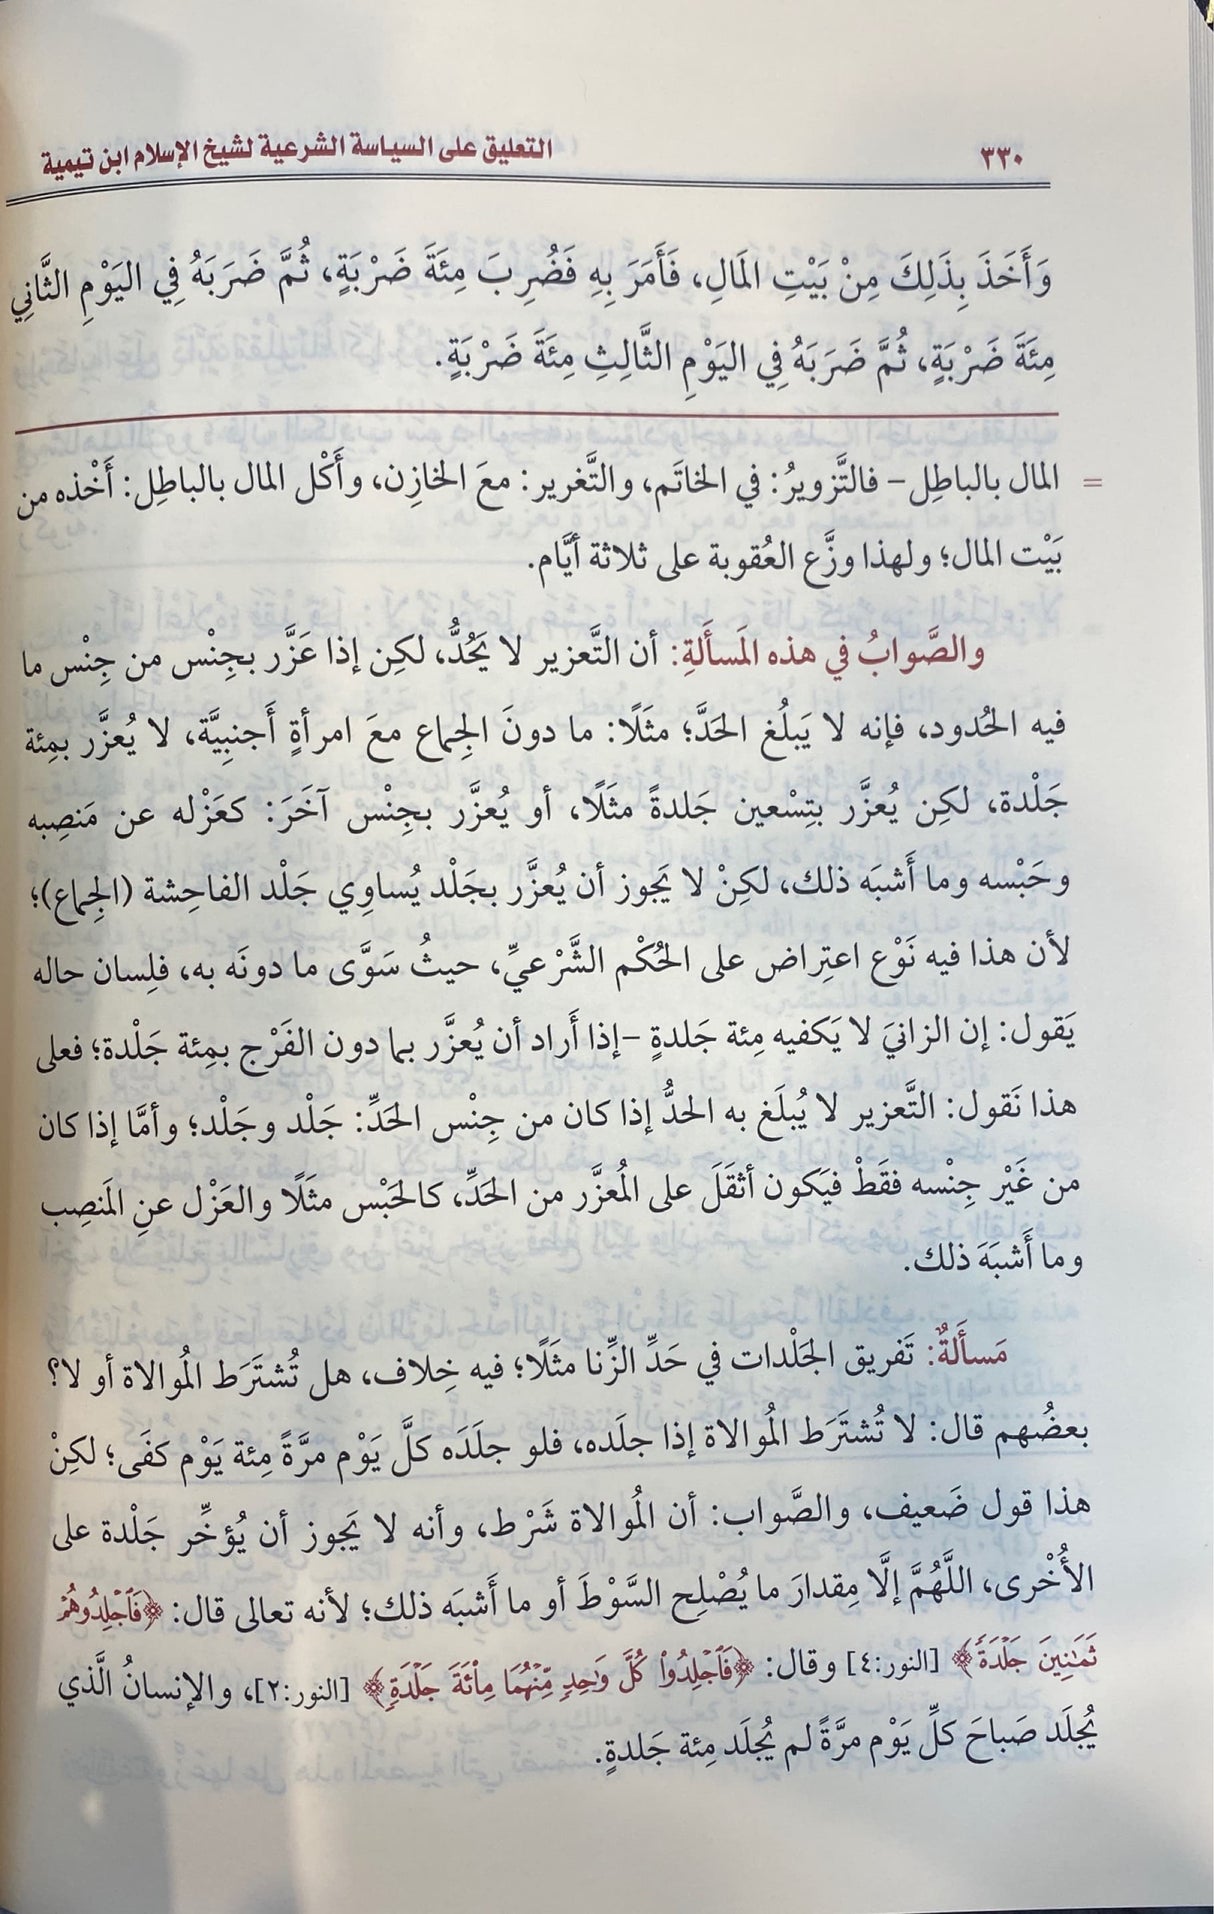 ٣٣٠ التعليق على السياسة الشرعية لشيخ الإسلام ابن تيمية
وَأَخَذَ بِذَلِكَ مِنْ بَيْتِ المَالِ، فَأَمَرَ بِهِ فَضُرِبَ مِئَةَ ضَرْبَةٍ، ثُمَّ ضَرَبَهُ فِي اليَوْمِ الثَّانِي
مِئَةَ ضَرْبَةٍ، ثُمَّ ضَرَبَهُ فِي اليَوْمِ الثَّالِثِ مِئَةَ ضَرْبَةٍ.
= المال بالباطِل – فالتَّزويرُ: في الخاتَم، والتَّغرير: معَ الخازِن، وأَكْل المال بالباطِل: أَخْذه من
بَيْت المال؛ ولهذا وزَّع العُقوبة على ثلاثة أيَّام.
والصَّوابُ في هذه المَسأَلةِ: أن التَّعزير لا يَحُدُّ، لكِن إذا عَزَّر بجِنْس من جِنْس ما
فيه الحُدود، فإنه لا يَبلُغ الحَدَّ؛ مثَلًا: ما دونَ الجِماع معَ امرأةٍ أَجنبِيَّة، لا يُعزَّر بمِئة
جَلْدة، لكِن يُعزَّر بتِسْعين جَلدةً مثَلًا، أو يُعزَّر بجِنْس آخَرَ: كعَزْله عن مَنصِبه
وحَبْسه وما أَشبَه ذلك، لكِنْ لا يَجوز أن يُعزَّر بجَلْد يُساوِي جَلْد الفاحِشة (الجِماع)؛
لأن هذا فيه نَوْع اعتِراض على الحُكْم الشَّرْعيِّ، حيثُ سَوَّى ما دونَه به، فلِسان حاله
يَقول: إن الزانيَ لا يَكفيه مِئة جَلدةٍ –إذا أَراد أن يُعزَّر بما دون الفَرْج بمِئة جَلْدة؛ فعلى
هذا نَقول: التَّعزير لا يُبلَغ به الحدُّ إذا كان من جِنْس الحَدِّ: جَلْد وجَلْد؛ وأمَّا إذا كان
من غَيْر جِنْسه فقَطْ فيَكون أثقَلَ على المُعزَّر من الحَدِّ، كالحَبْس مثَلًا والعَزْل عنِ المَنصِب
وما أَشبَهَ ذلك.
مَسأَلةٌ: تَفريق الجَلْدات في حَدِّ الزِّنا مثَلًا؛ فيه خِلاف، هل تُشتَرَط المُوالاة أو لا؟
بعضُهم قال: لا تُشتَرَط المُوالاة إذا جلَده، فلو جلَدَه كلَّ يَوْم مرَّةً مِئة يَوْم كفَى؛ لكِنْ
هذا قول ضَعيف، والصَّواب: أن المُوالاة شَرْط، وأنه لا يَجوز أن يُؤخِّر جَلْدة على
الأُخْرى، اللَّهُمَّ إلَّا مِقدارَ ما يُصْلِح السَّوْطَ أو ما أَشبَه ذلك؛ لأنه تعالى قال: ﴿فَٱجۡلِدُوهُمۡ
ثَمَٰنِينَ جَلۡدَةٗ﴾ [النور:٤] وقال: ﴿فَٱجۡلِدُواْ كُلَّ وَٰحِدٖ مِّنۡهُمَا مِاْئَةَ جَلۡدَةٖ﴾ [النور:٢]، والإنسانُ الَّذي
يُجلَد صَباحَ كلِّ يَوْم مرَّةً لم يُجلَد مِئة جَلدةٍ.